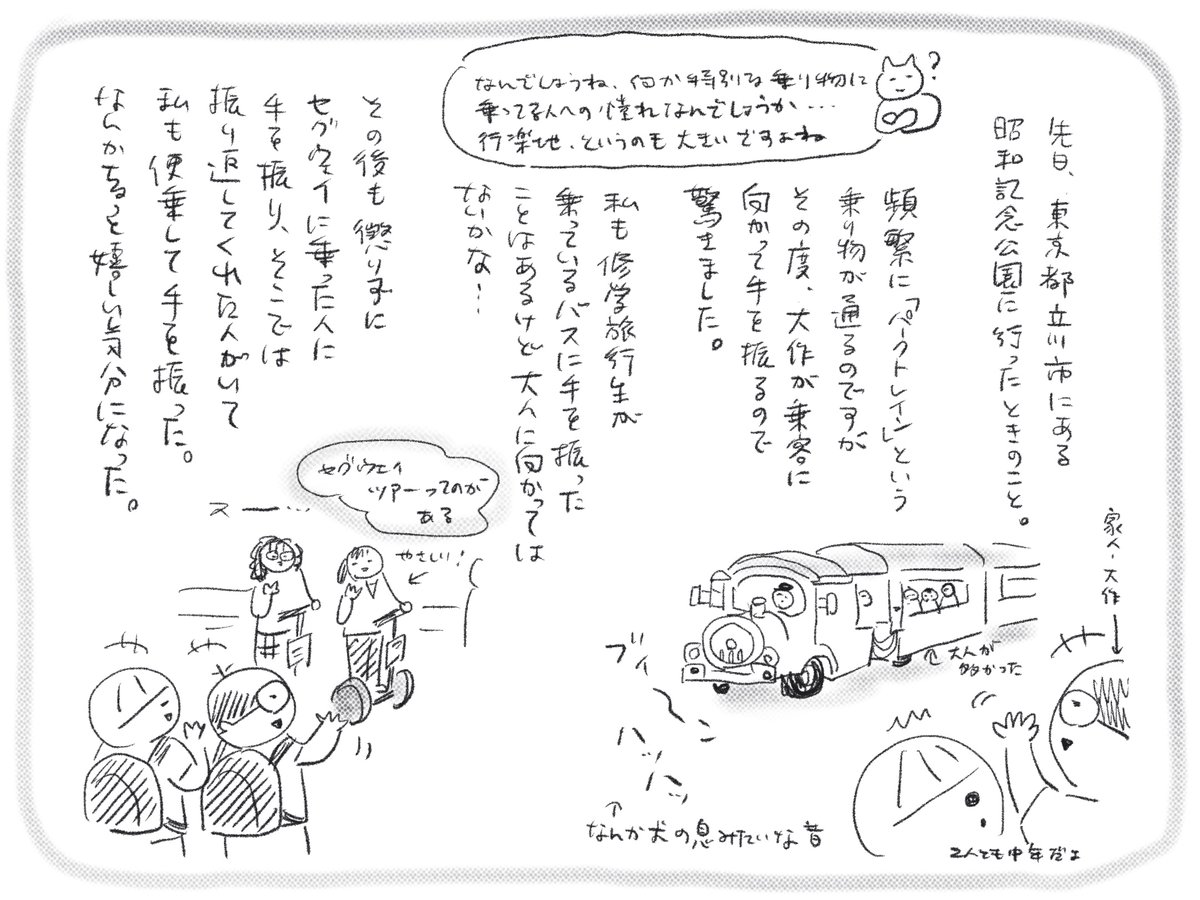 先日、東京都立川市にある
昭和記念公園に行ったときのこと。
頻繁に「パークトレイン」という
乗り物が通るのですが
その度、大作が乗客に
向かって手を振るので
驚きました。
家人・大作
大人が
多かった
ブィーン
ハッハッ
なんか犬の息みたいな音
2人とも中年だよ
なんでしょうね、何か特別な乗り物に
乗ってる人への憧れなんでしょうか…
行楽地、というのも大きいですよね
?
私も修学旅行生が
乗っているバスに手を振った
ことはあるけど大人に向かっては
ないかな…
その後も懲りずに
セグウェイに乗った人に
手を振り、そこでは
振り返してくれた人がいて
私も便乗して手を振った。
なんかちょっと嬉しい気分になった。
セグウェイ
ツアーってのが
ある
スー…
やさしい!